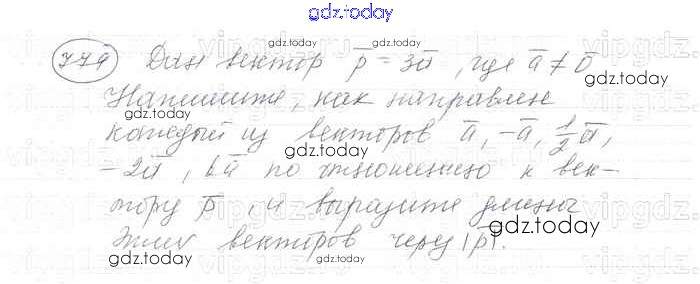 gdz.today
779 Дан вектор p̅ = 3a̅, где a̅ ≠ 0̅
Напишите, как направлен
каждый из векторов a̅, -a̅, 1/2 a̅,
-2a̅, 6a̅ по отношению к век-
тору p̅, и выразите длины
этих векторов через |p̅|.
gdz.today
gdz.today
gdz.today
gdz.today
gdz.today
gdz.today
gdz.today